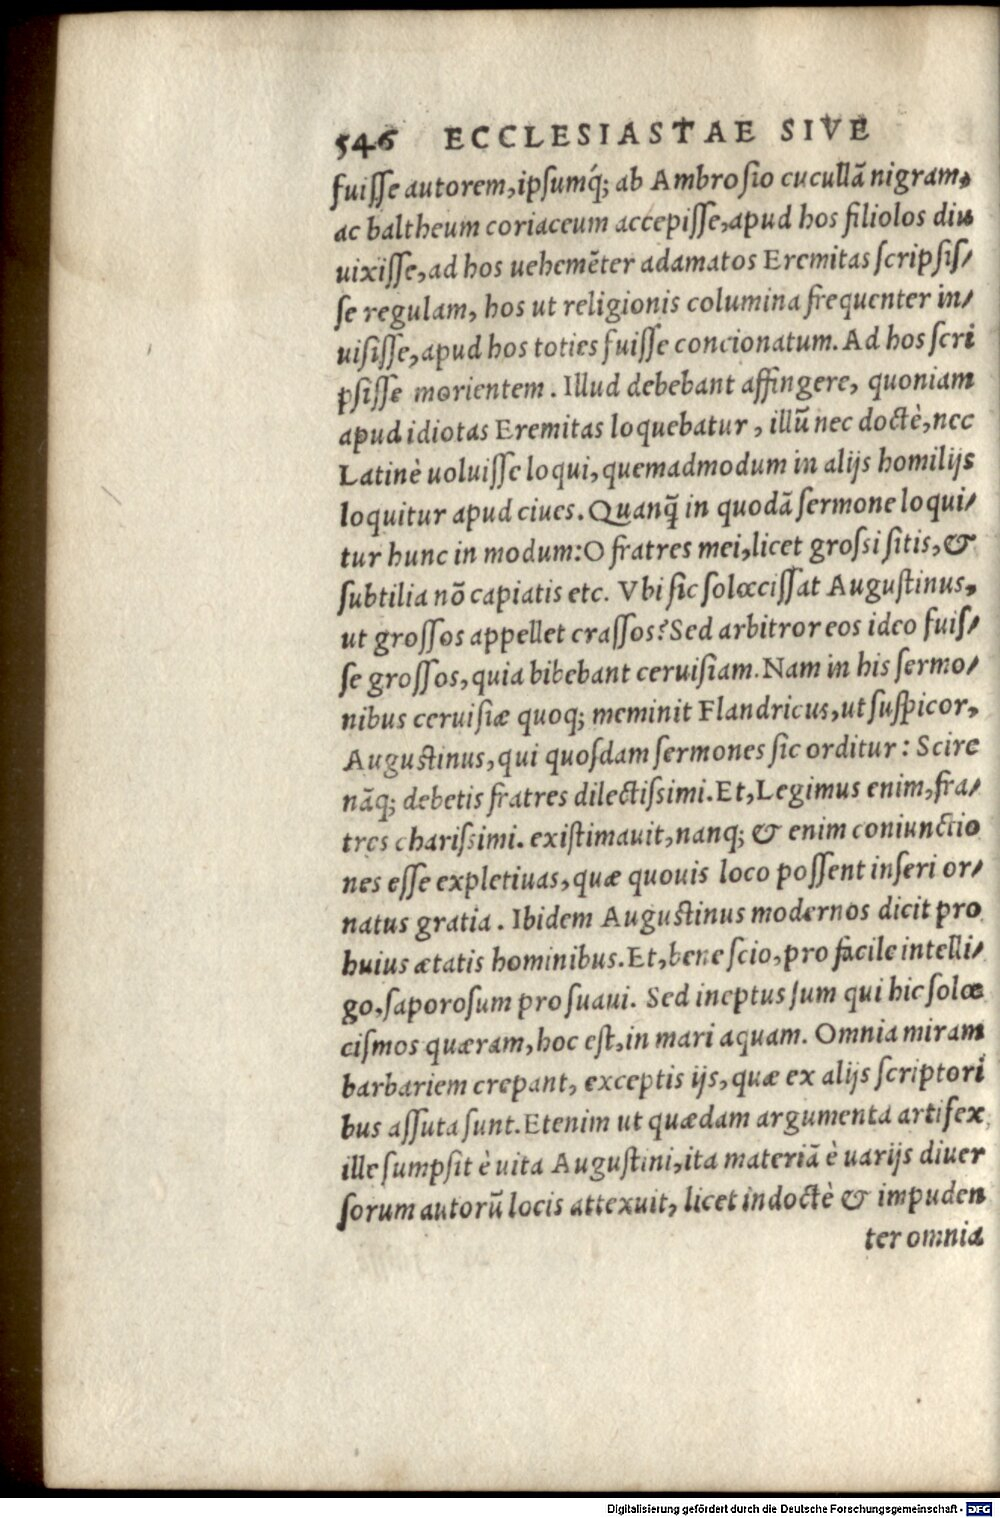 546 ECCLESIASTAE SIVE
fuiſſe autorem, ipſumq́; ab Ambroſio cucullā nigram,
ac baltheum coriaceum accepiſſe, apud hos filiolos diu
uixiſſe, ad hos uehemēter adamatos Eremitas ſcripſiſ/
ſe regulam, hos ut religionis columina frequenter in/
uiſiſſe, apud hos toties fuiſſe concionatum. Ad hos ſcri
pſiſſe morientem. Illud debebant affingere, quoniam
apud idiotas Eremitas loquebatur, illū nec doctè, nec
Latinè uoluiſſe loqui, quemadmodum in alijs homilijs
loquitur apud ciues. Quanq̃ in quodā ſermone loqui/
tur hunc in modum: O fratres mei, licet groſsi ſitis, &
ſubtilia nō capiatis etc. Vbi ſic ſolœciſſat Auguſtinus,
ut groſſos appellet craſſos? Sed arbitror eos ideo fuiſ/
ſe groſſos, quia bibebant ceruiſiam. Nam in his ſermo/
nibus ceruiſiæ quoq; meminit Flandricus, ut ſuſpicor,
Auguſtinus, qui quoſdam ſermones ſic orditur: Scire
nāq; debetis fratres dilectiſsimi. Et, Legimus enim, fra/
tres chariſsimi. exiſtimauit, nanq; & enim coniunctio
nes eſſe expletiuas, quæ quouis loco poſſent inſeri or/
natus gratia. Ibidem Auguſtinus modernos dicit pro
huius ætatis hominibus. Et, bene ſcio, pro facile intelli/
go, ſaporoſum pro ſuaui. Sed ineptus ſum qui hic ſolœ
ciſmos quæram, hoc eſt, in mari aquam. Omnia miram
barbariem crepant, exceptis ijs, quæ ex alijs ſcriptori
bus aſſuta ſunt. Etenim ut quædam argumenta artifex
ille ſumpſit è uita Auguſtini, ita materiā è uarijs diuer
ſorum autorū locis attexuit, licet indoctè & impuden
ter omnia
Digitalisierung gefördert durch die Deutsche Forschungsgemeinschaft - DFG